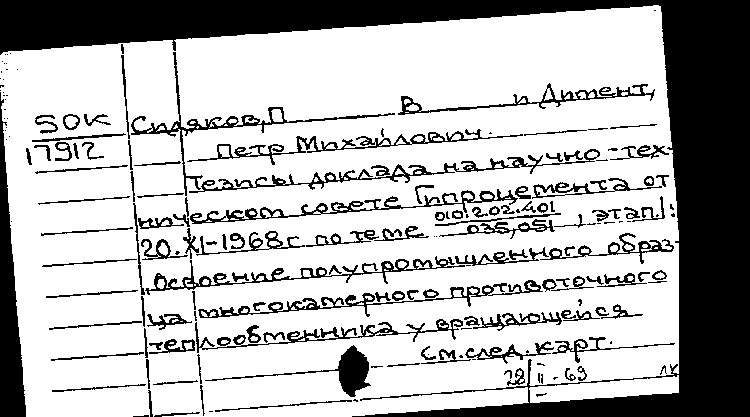 50К Сидяков, П В и Дитент,
17912 Петр Михайлович.
Тезисы доклада на научно-тех-
ническом совете Гипроцемента от
20.XI-1968г по теме 010/2.02.401/035,051, этап 1:
„Освоение полупромышленного образ-
ца многокамерного противоточного
теплообменника у вращающейся
См.след.карт.
22/II-69 ЛК